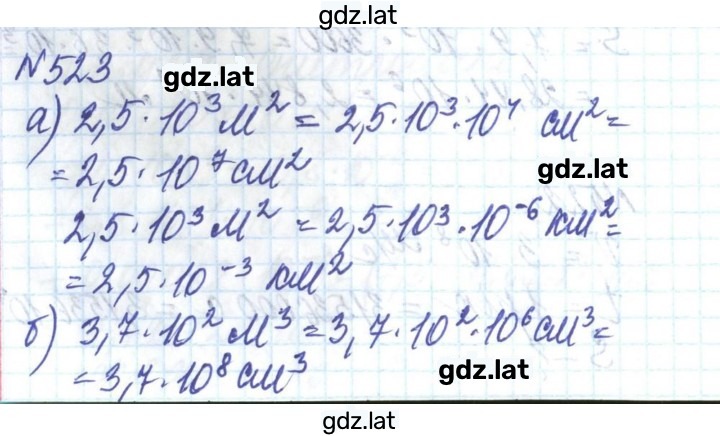 gdz.lat
N523
gdz.lat
а) 2,5·10³ м² = 2,5·10³·10⁴ см² =
= 2,5·10⁷ см²
gdz.lat
2,5·10³ м² = 2,5·10³·10⁻⁶ км² =
= 2,5·10⁻³ км²
б) 3,7·10² м³ = 3,7·10²·10⁶ см³ =
= 3,7·10⁸ см³
gdz.lat
gdz.lat